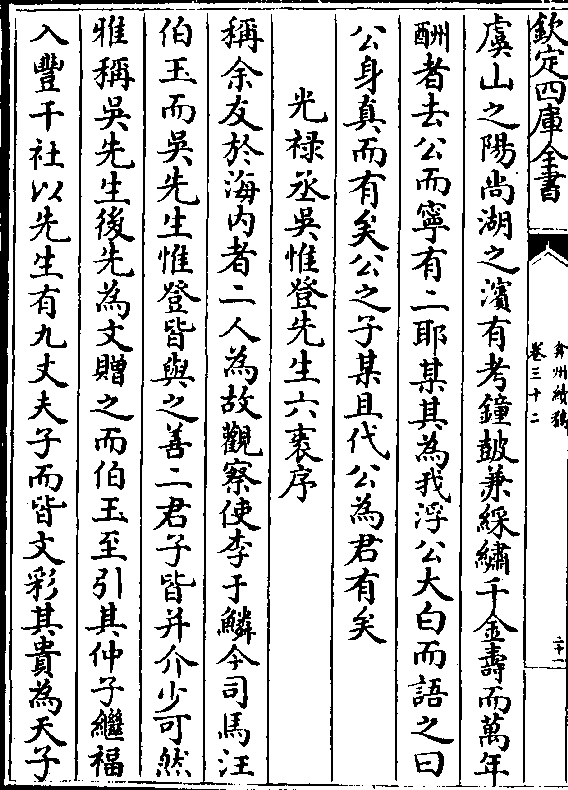 欽定四庫全書
弇州續稿
卷三十二
二十一
虞山之陽尚湖之濱有考鐘鼓兼綵繡千金壽而萬年
酬者去公而寧有二耶某其為我浮公大白而語之曰
公身真而有矣公之子某且代公為君有矣
光祿丞吳惟登先生六袠序
稱余友於海內者二人為故觀察使李于鱗今司馬汪
伯玉而吳先生惟登皆與之善二君子皆幷介少可然
雅稱吳先生後先為文贈之而伯玉至引其仲子繼福
入豐干社以先生有九丈夫子而皆文彩其貴為天子